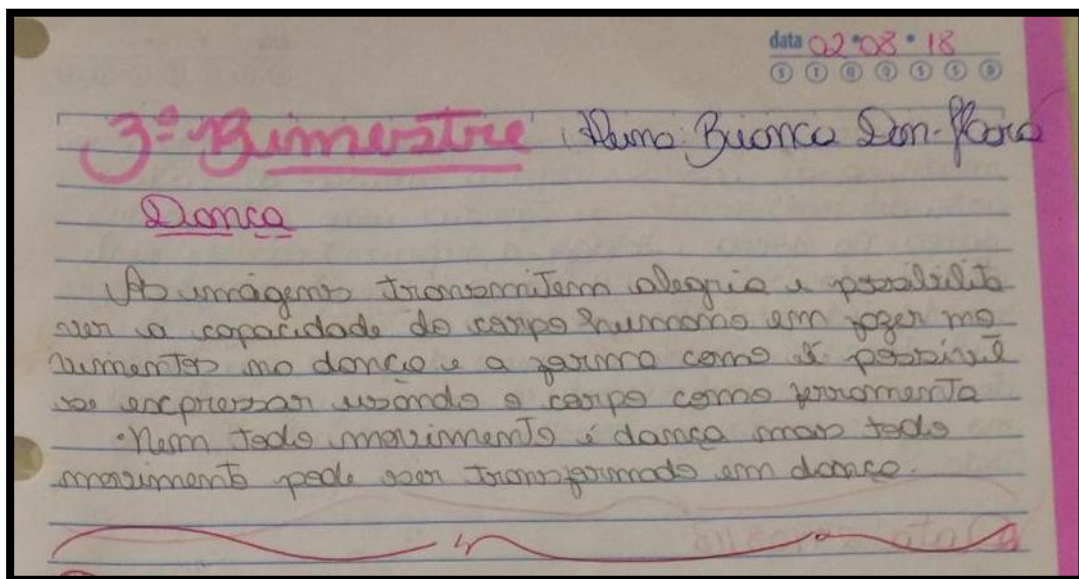 data 02 08 18
S T Q Q S S D
3º Bimestre Aluna: Bianca Dan-
Dança
As imagens transmitem alegria e possibilita
ver a capacidade do corpo humano em fazer mo
vimentos na dança e a forma como é possivel
se expressar usando o corpo como ferramenta
Nem todo movimento é dança mas todo
movimento pode ser transformado em dança.